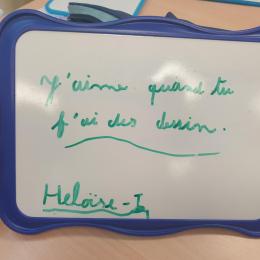 J'aime quand tu
f'ai des dessin.
Heloïse-I